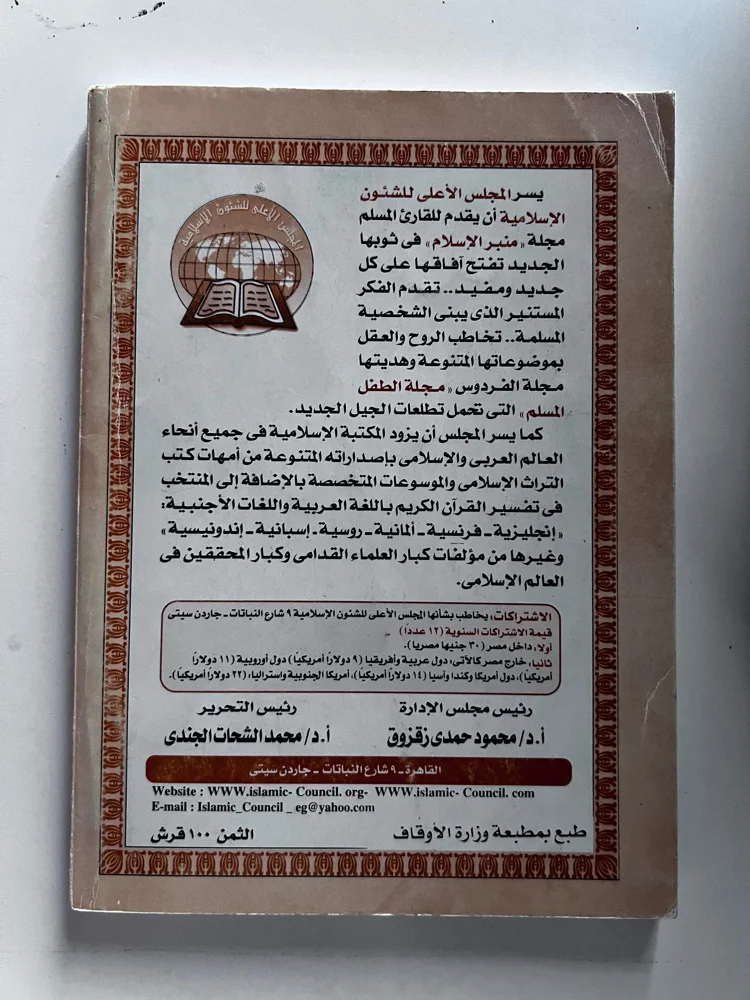 المجلس الأعلى للشئون الإسلامية
يسر المجلس الأعلى للشئون
الإسلامية أن يقدم للقارئ المسلم
مجلة «منبر الإسلام» فى ثوبها
الجديد تفتح آفاقها على كل
جديد ومفيد.. تقدم الفكر
المستنير الذى يبنى الشخصية
المسلمة.. تخاطب الروح والعقل
بموضوعاتها المتنوعة وهديتها
مجلة الفردوس «مجلة الطفل
المسلم» التى تحمل تطلعات الجيل الجديد.
كما يسر المجلس أن يزود المكتبة الإسلامية فى جميع أنحاء
العالم العربى والإسلامى بإصداراته المتنوعة من أمهات كتب
التراث الإسلامى والموسوعات المتخصصة بالإضافة إلى المنتخب
فى تفسير القرآن الكريم باللغة العربية واللغات الأجنبية:
«إنجليزية - فرنسية - ألمانية - روسية - إسبانية - إندونيسية»
وغيرها من مؤلفات كبار العلماء القدامى وكبار المحققين فى
العالم الإسلامى.
الاشتراكات: يخاطب بشأنها المجلس الأعلى للشئون الإسلامية ٩ شارع النباتات - جاردن سيتى
قيمة الاشتراكات السنوية (١٢ عدداً)
أولا: داخل مصر (٣٠ جنيها مصريا).
ثانيا: خارج مصر كالآتى: دول عربية وأفريقيا (٩ دولاراً أمريكياً) دول أوروبية (١١ دولاراً
أمريكياً)، دول أمريكا وكندا وآسيا (١٤ دولاراً أمريكياً)، أمريكا الجنوبية واستراليا: (٢٢ دولاراً أمريكياً).
رئيس مجلس الإدارة
أ.د/ محمود حمدى زقزوق
رئيس التحرير
أ.د/ محمد الشحات الجندى
القاهرة - ٩ شارع النباتات - جاردن سيتى
Website : WWW.islamic- Council. org- WWW.islamic- Council. com
E-mail : Islamic_Council _ eg@yahoo.com
طبع بمطبعة وزارة الأوقاف
الثمن ١٠٠ قرش